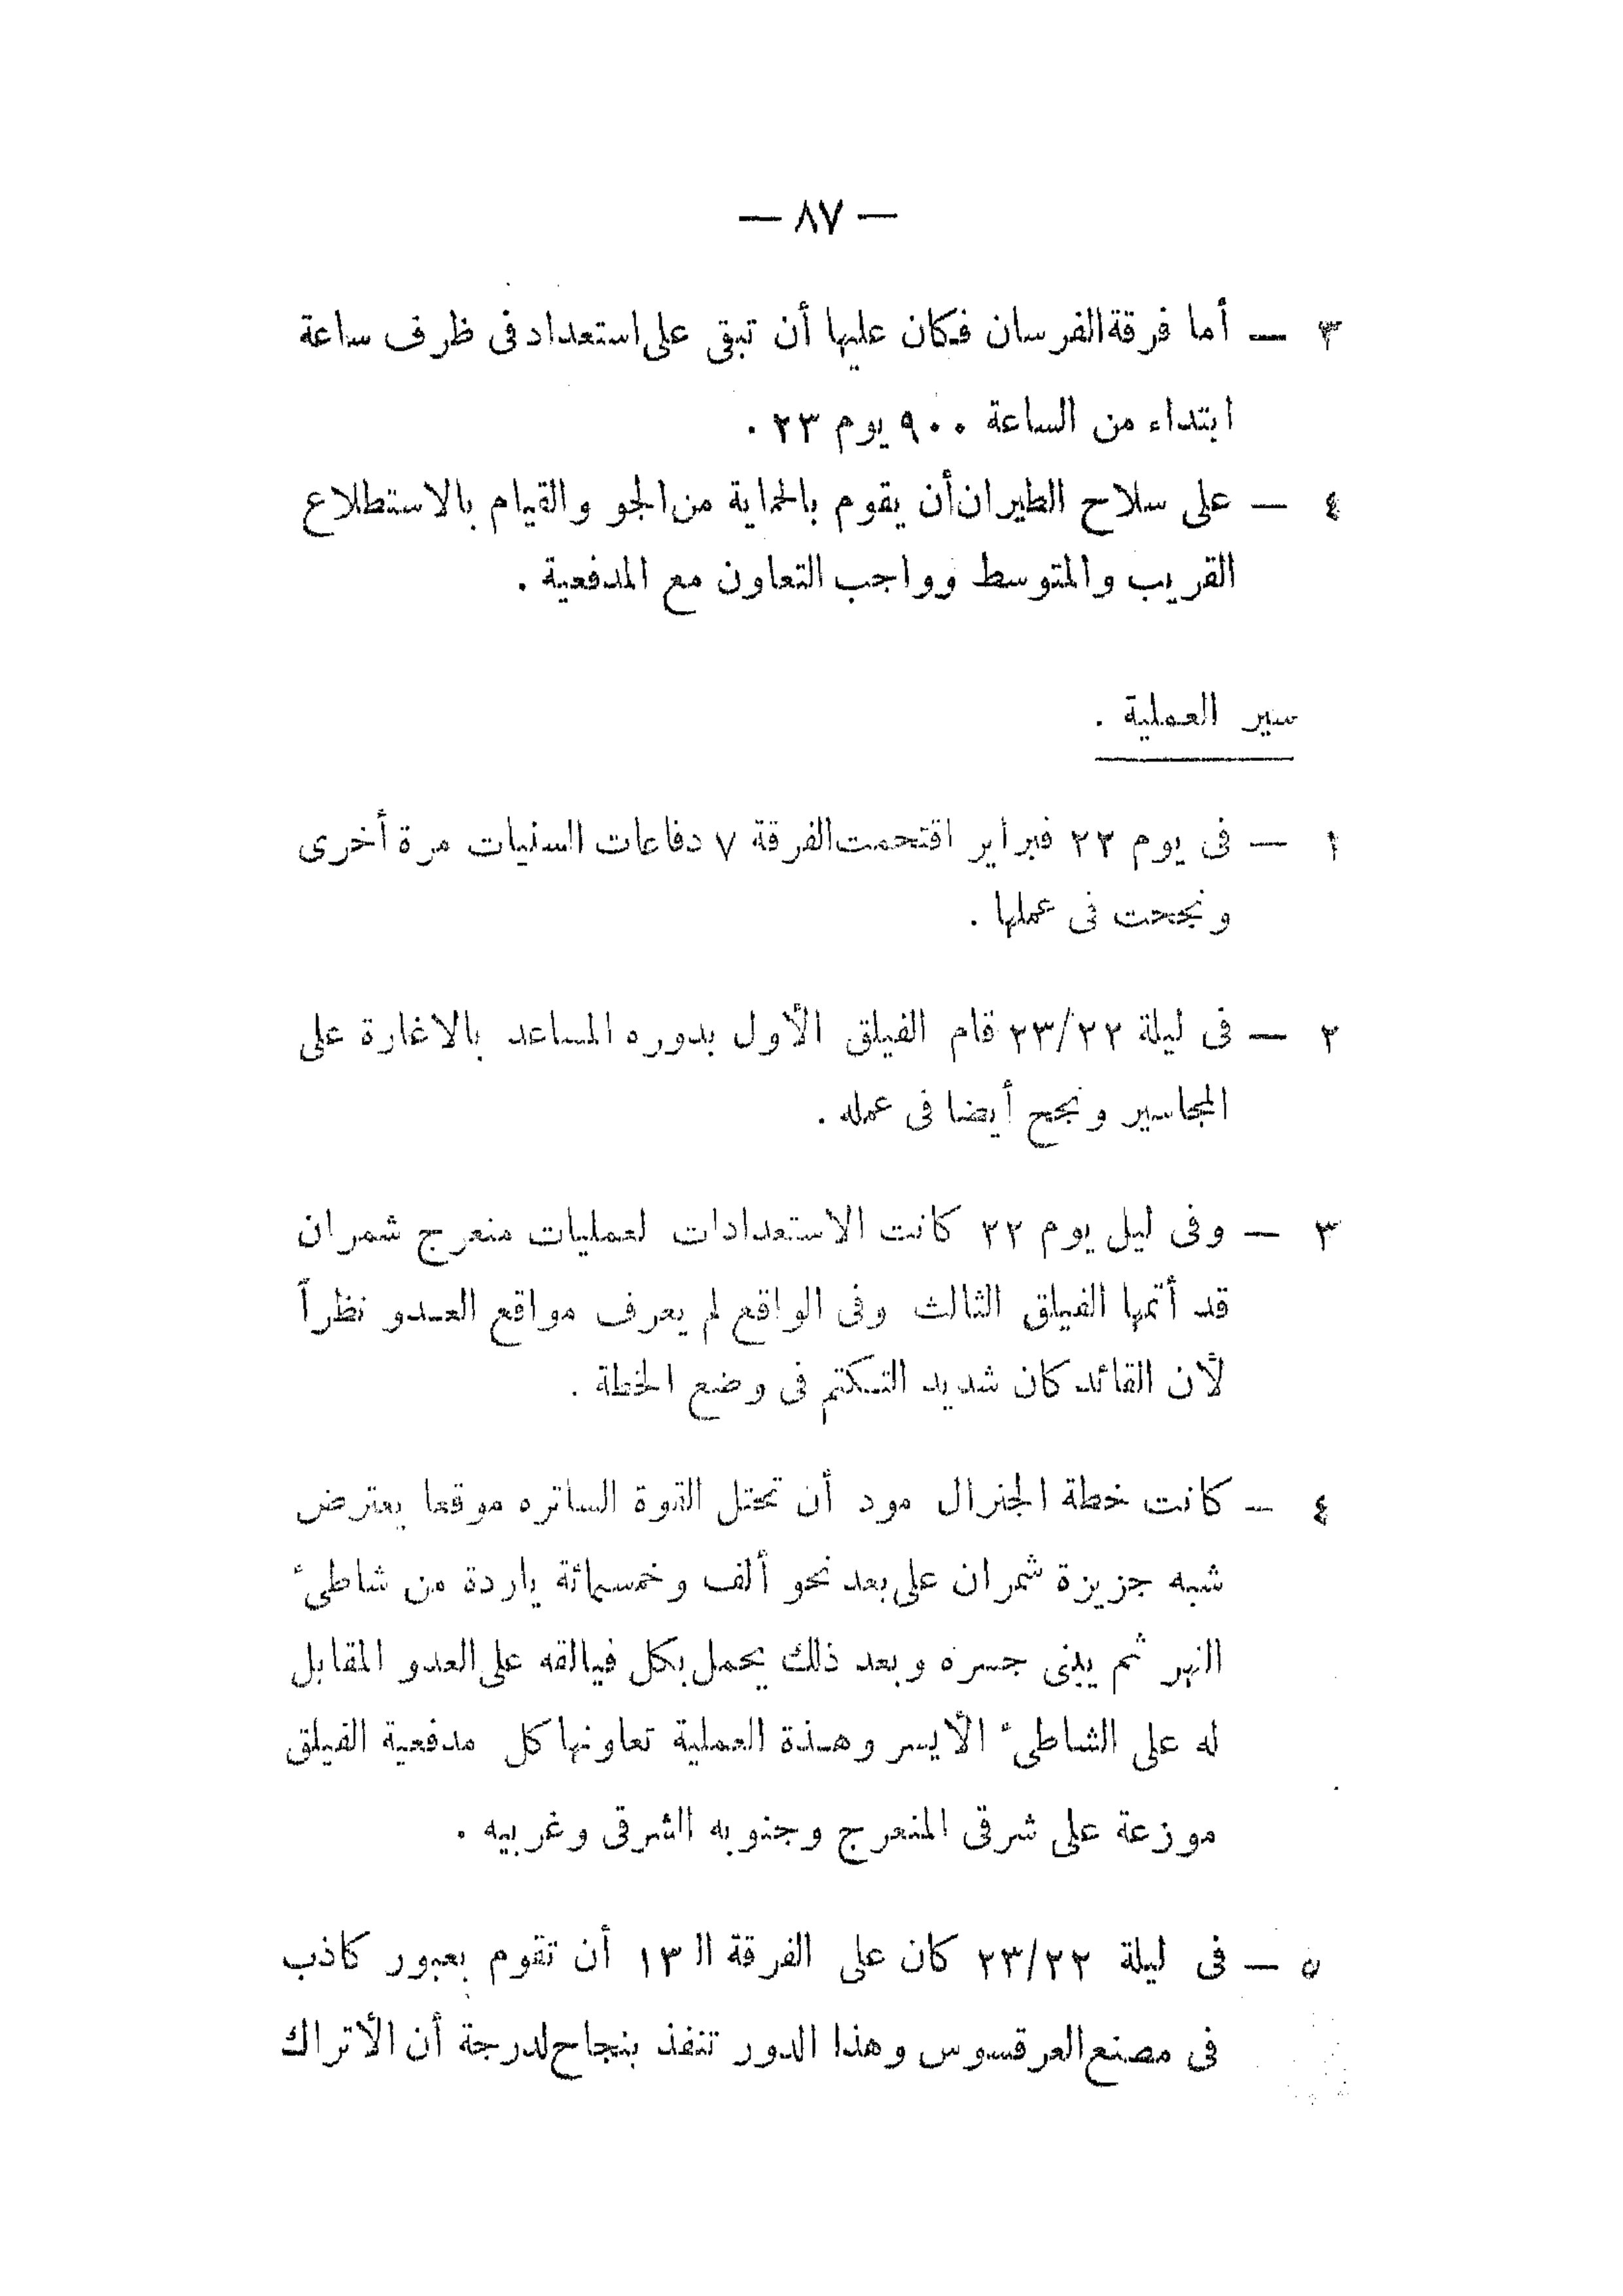 — ٨٧ —
٣ — أما فرقة الفرسان فكان عليها أن تبقى على استعداد فى ظرف ساعة
ابتداء من الساعة ٩٠٠ يوم ٢٣ .
٤ — على سلاح الطيران أن يقوم بالحماية من الجو والقيام بالاستطلاع
القريب والمتوسط وواجب التعاون مع المدفعية .
سير العملية .
١ — فى يوم ٢٢ فبراير اقتحمت الفرقة ٧ دفاعات السنيات مرة أخرى
ونجحت فى عملها .
٢ — فى ليلة ٢٣/٢٢ قام الفيلق الأول بدوره المساعد بالاغارة على
المجاسير ونجح أيضا فى عمله .
٣ — وفى ليل يوم ٢٢ كانت الاستعدادات لعمليات منعرج شمران
قد أتمها الفيلق الثالث وفى الواقع لم يعرف مواقع العدو نظراً
لأن القائد كان شديد التكتم فى وضع الخطة .
٤ — كانت خطة الجنرال مود أن تحتل القوة الساتره موقعا يعترض
شبه جزيزة شمران على بعد نحو ألف وخمسمائة ياردة من شاطىء
النهر ثم يبنى جسره وبعد ذلك يحمل بكل فيالقه على العدو المقابل
له على الشاطىء الأيسر وهذة العملية تعاونها كل مدفعية الفيلق
موزعة على شرقى المنعرج وجنوبه الشرقى وغربيه .
٥ — فى ليلة ٢٣/٢٢ كان على الفرقة الـ ١٣ أن تقوم بعبور كاذب
فى مصنع العرقسوس وهذا الدور تنفذ بنجاح لدرجة أن الأتراك